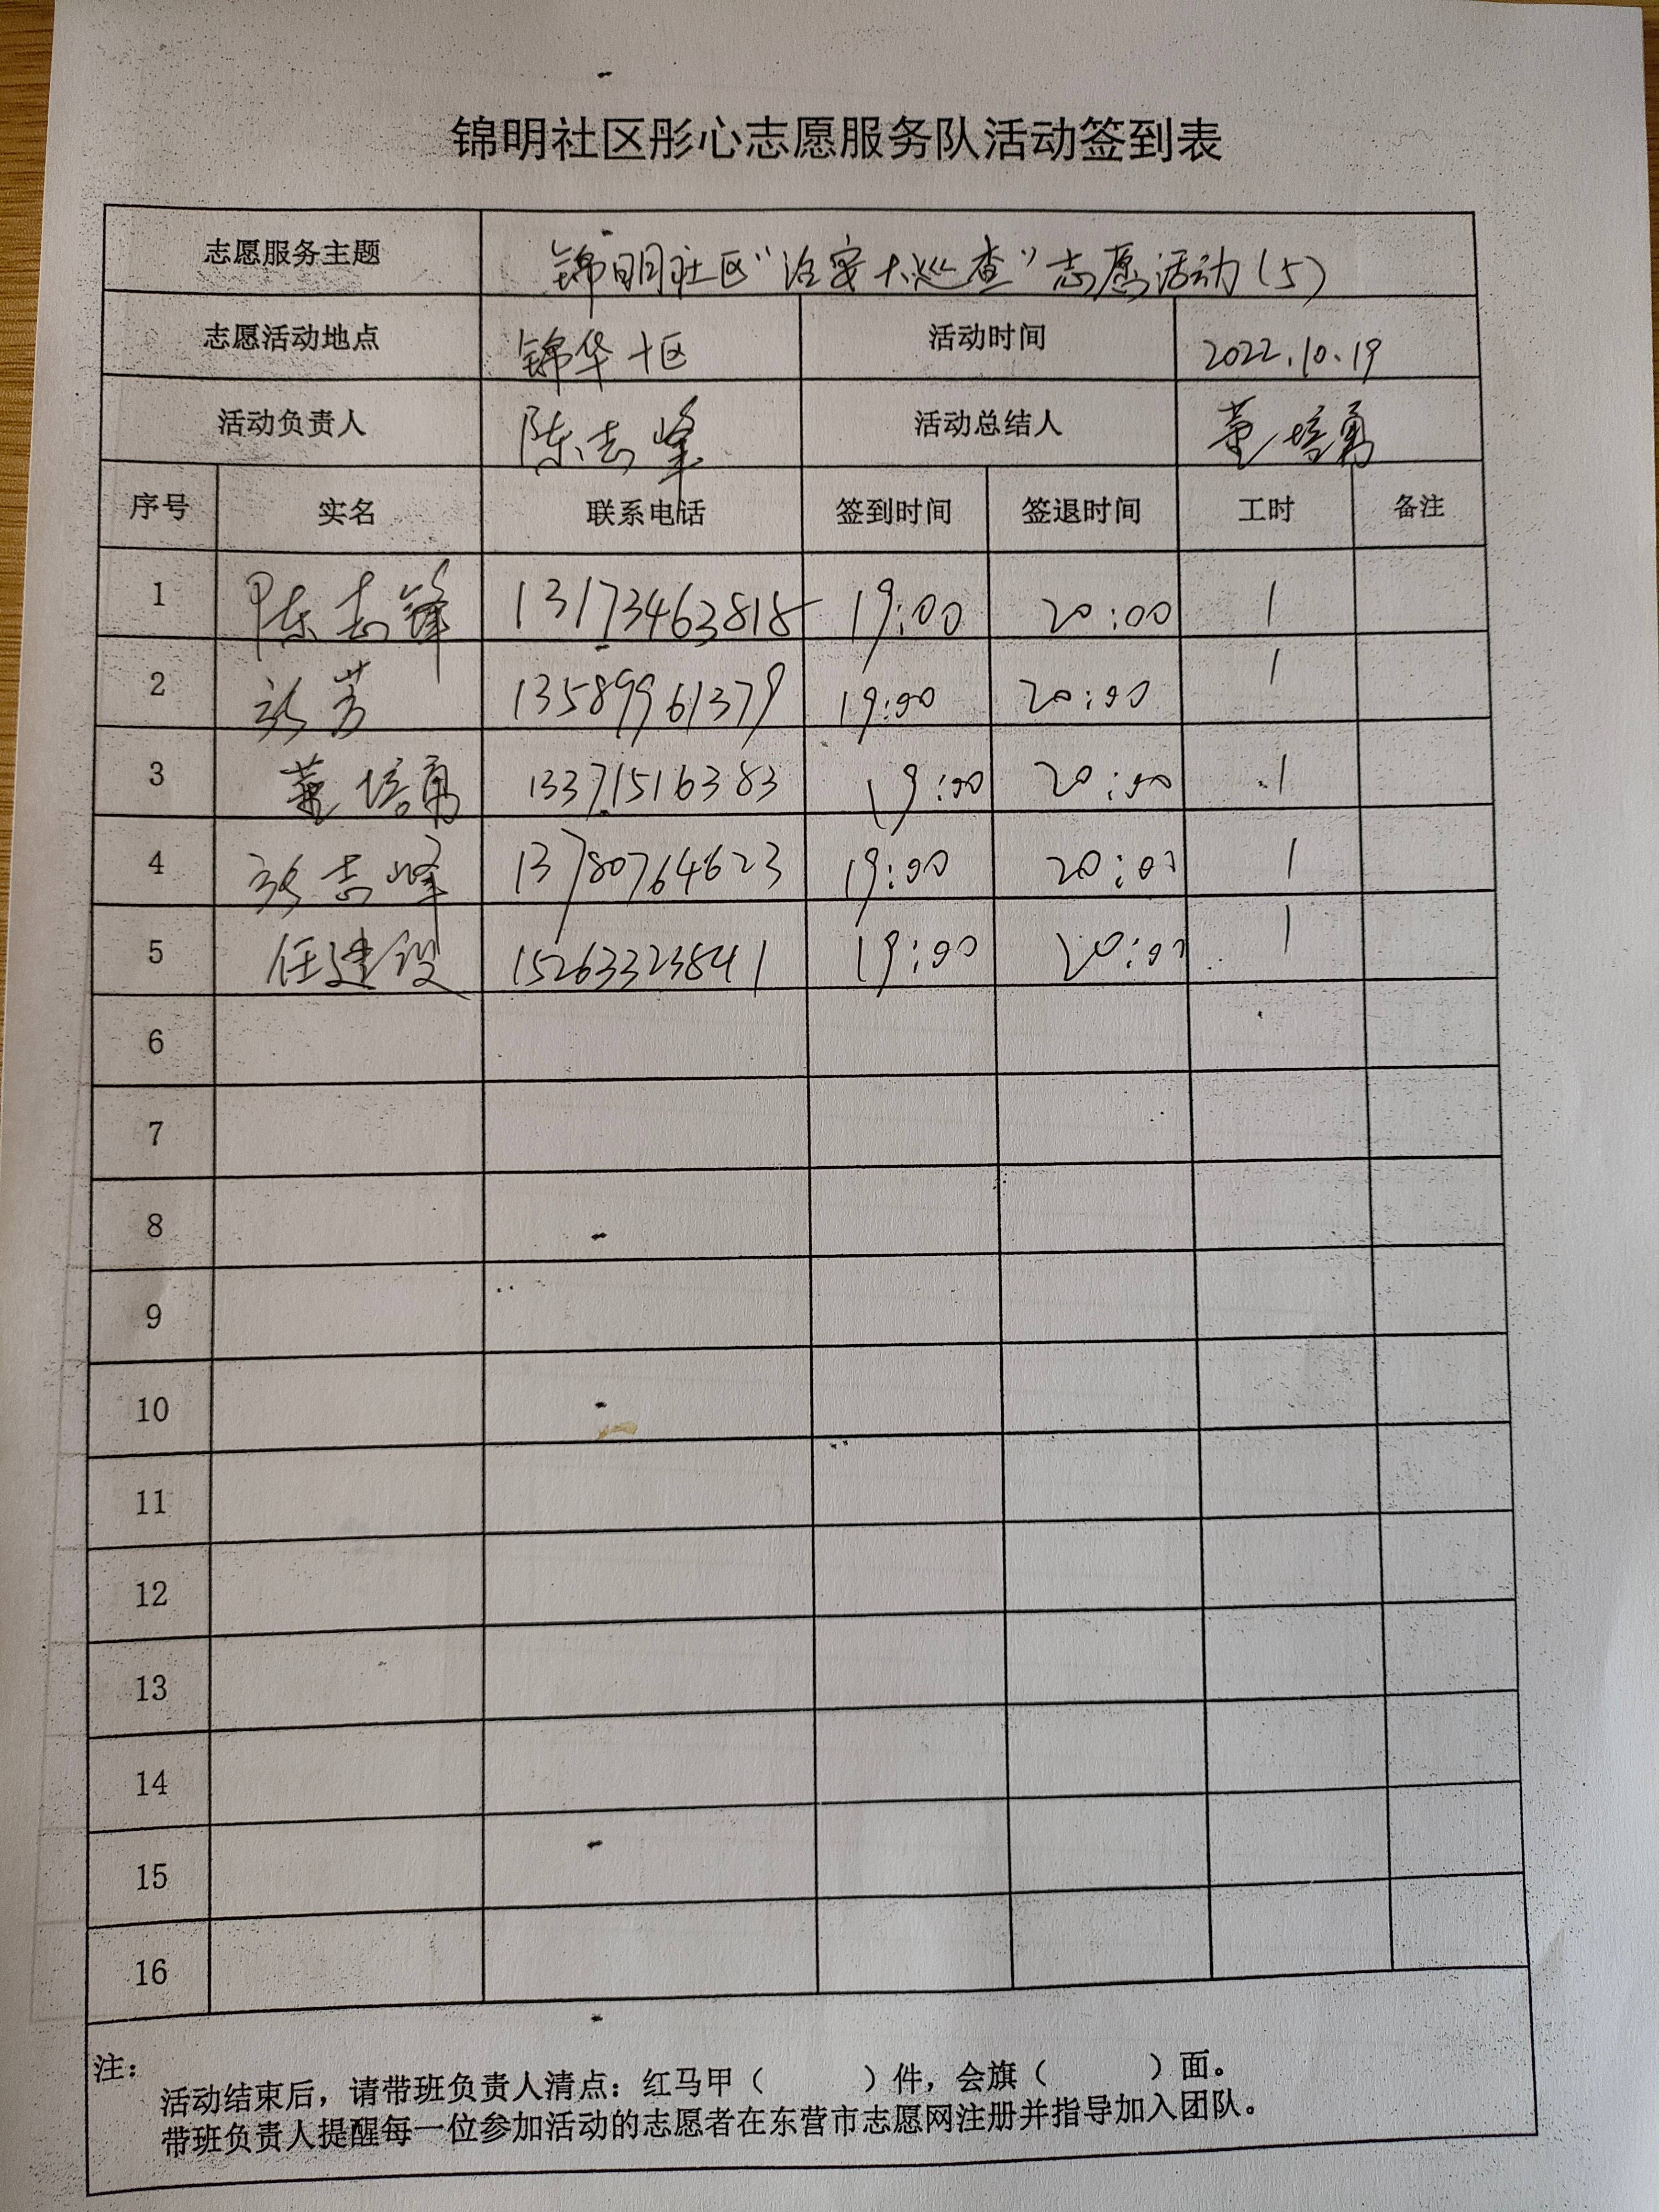 锦明社区彤心志愿服务队活动签到表
志愿服务主题 锦明社区“治安大巡查”志愿活动(5)
志愿活动地点 锦华十区 活动时间 2022.10.19
活动负责人 陈志峰 活动总结人 董培勇
序号 实名 联系电话 签到时间 签退时间 工时 备注
1 陈志锋 13173463815 19:00 20:00 1
2 芳 13589961379 19:00 20:00 1
3 董培勇 13371516383 19:00 20:00 1
4 志峰 13780764623 19:00 20:00 1
5 任建设 15263323841 19:00 20:00 1
6
7
8
9
10
11
12
13
14
15
16
注:
活动结束后，请带班负责人清点：红马甲（ ）件，会旗（ ）面。
带班负责人提醒每一位参加活动的志愿者在东营市志愿网注册并指导加入团队。